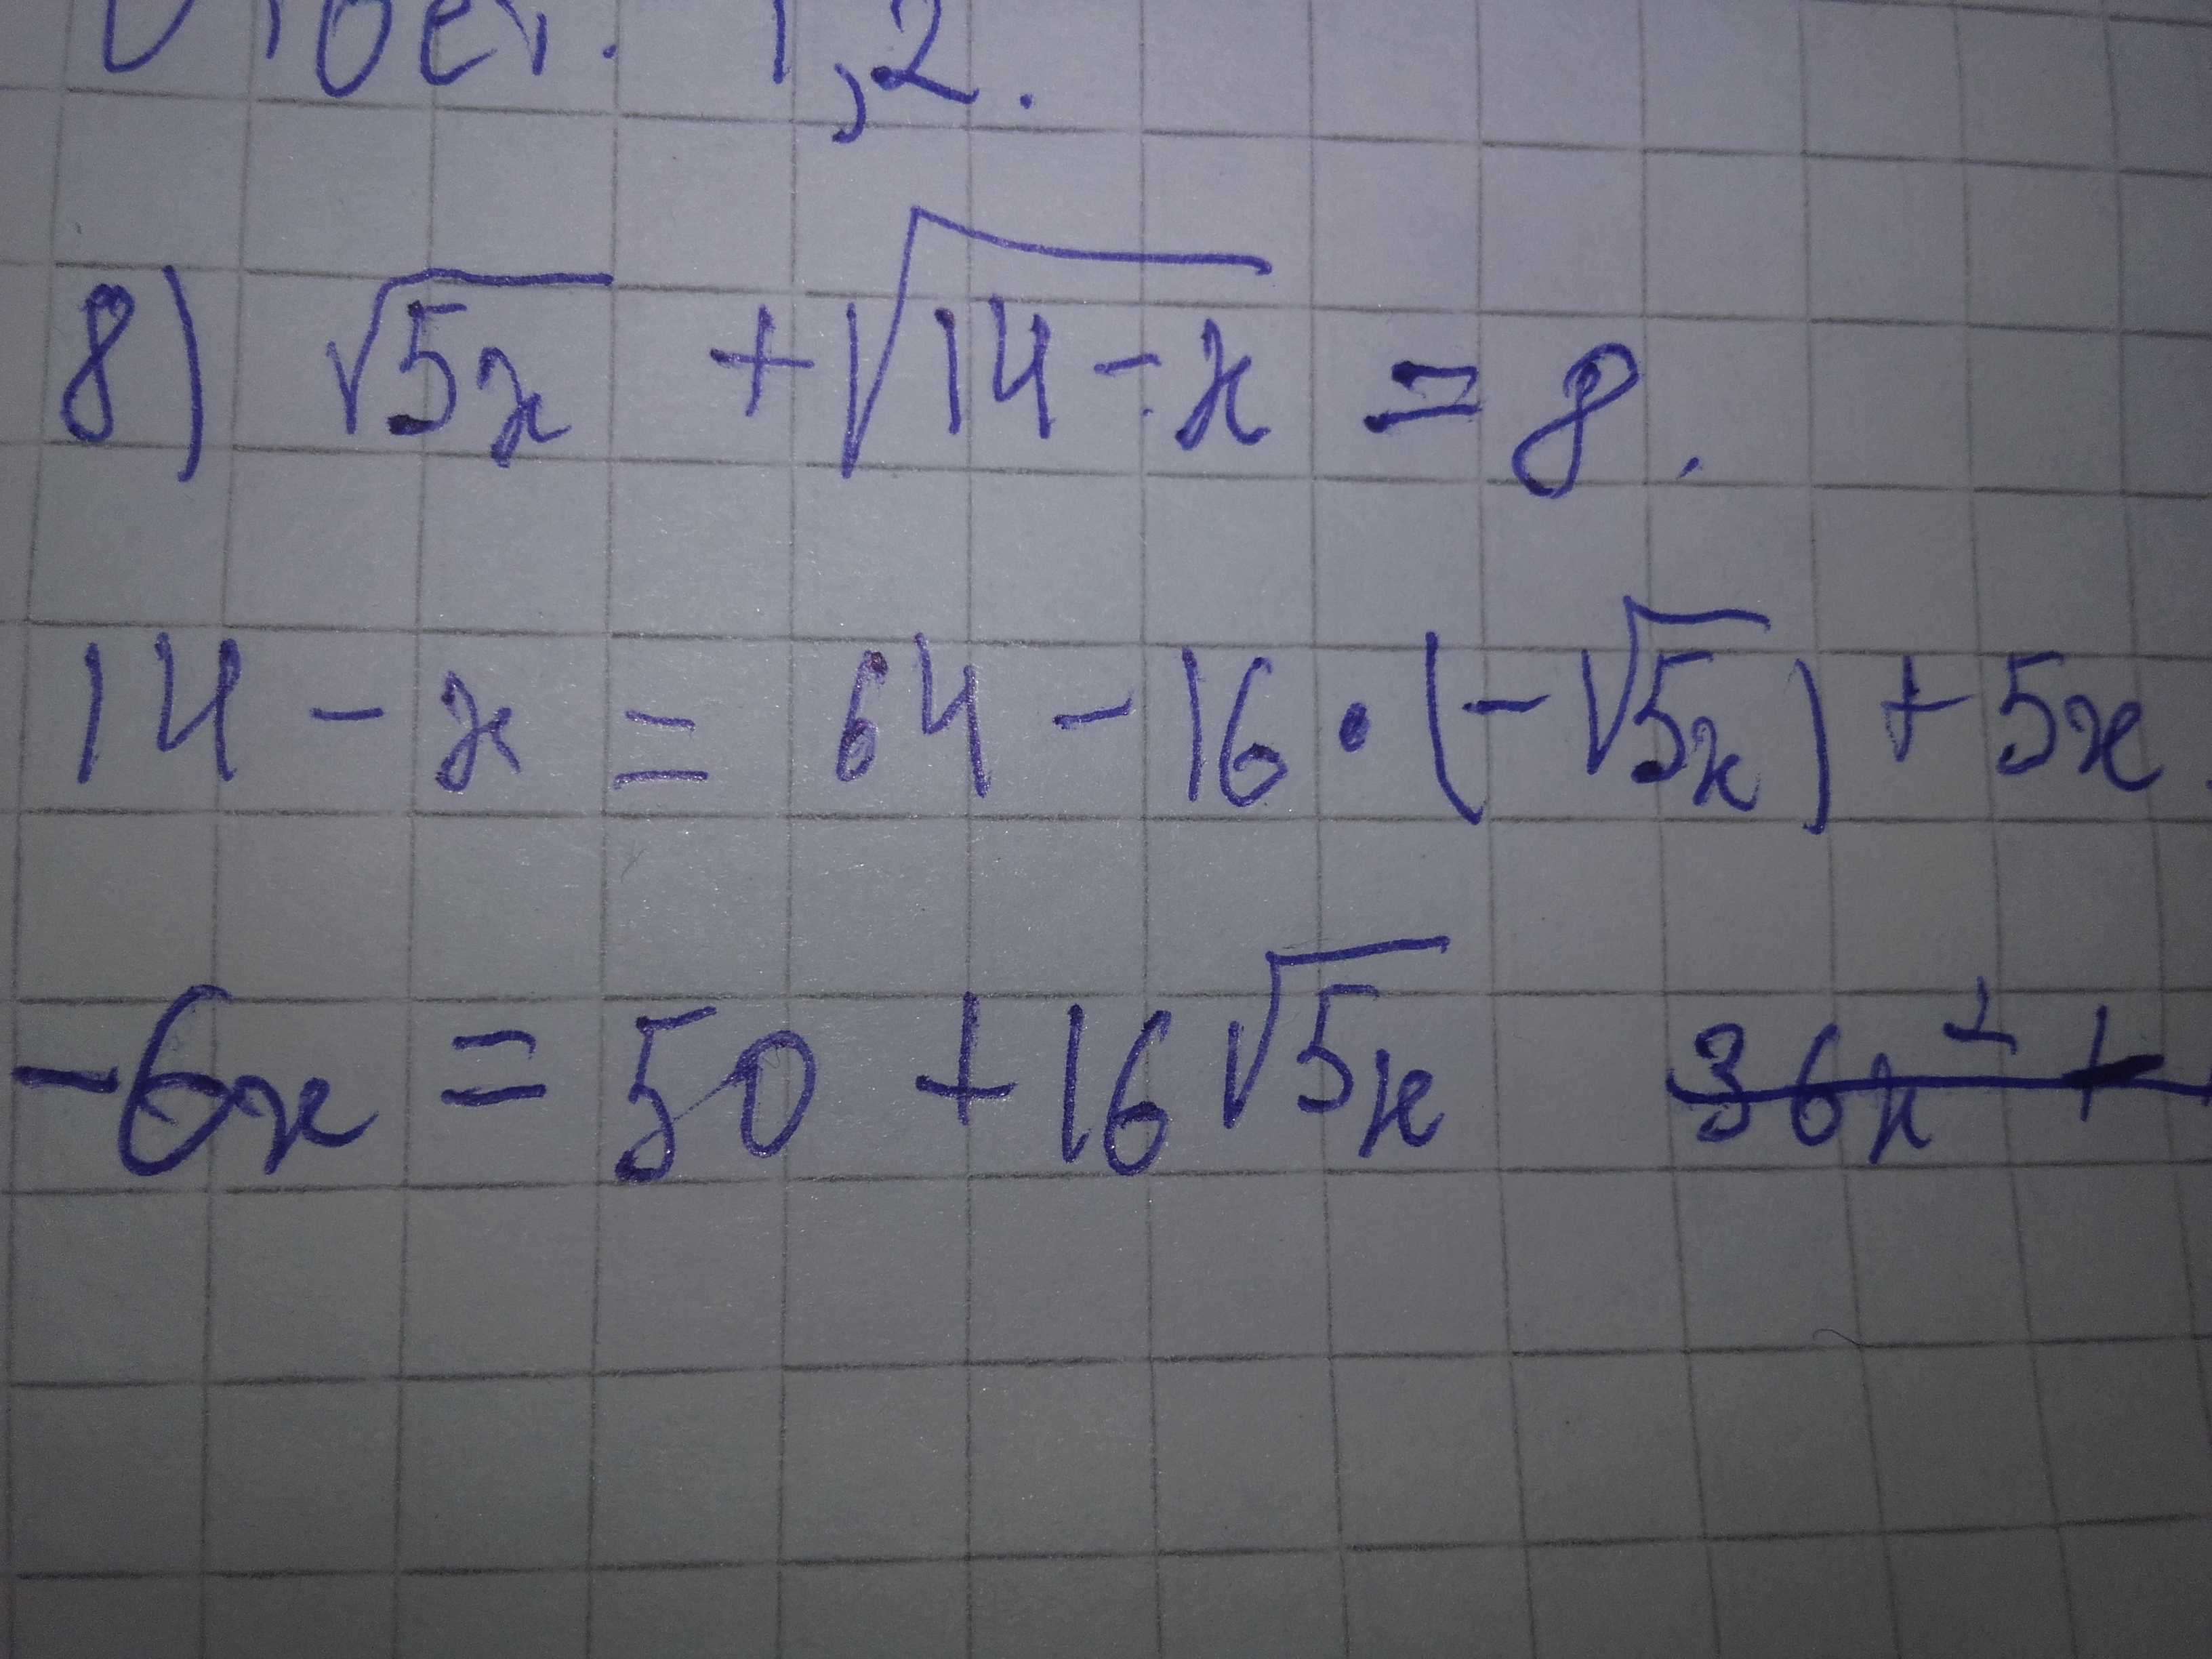 Ответ. 1,2.
8) √5x + √14-x = 8.
14 - x = 64 - 16 · (-√5x) + 5x.
-6x = 50 + 16√5x 36x² +